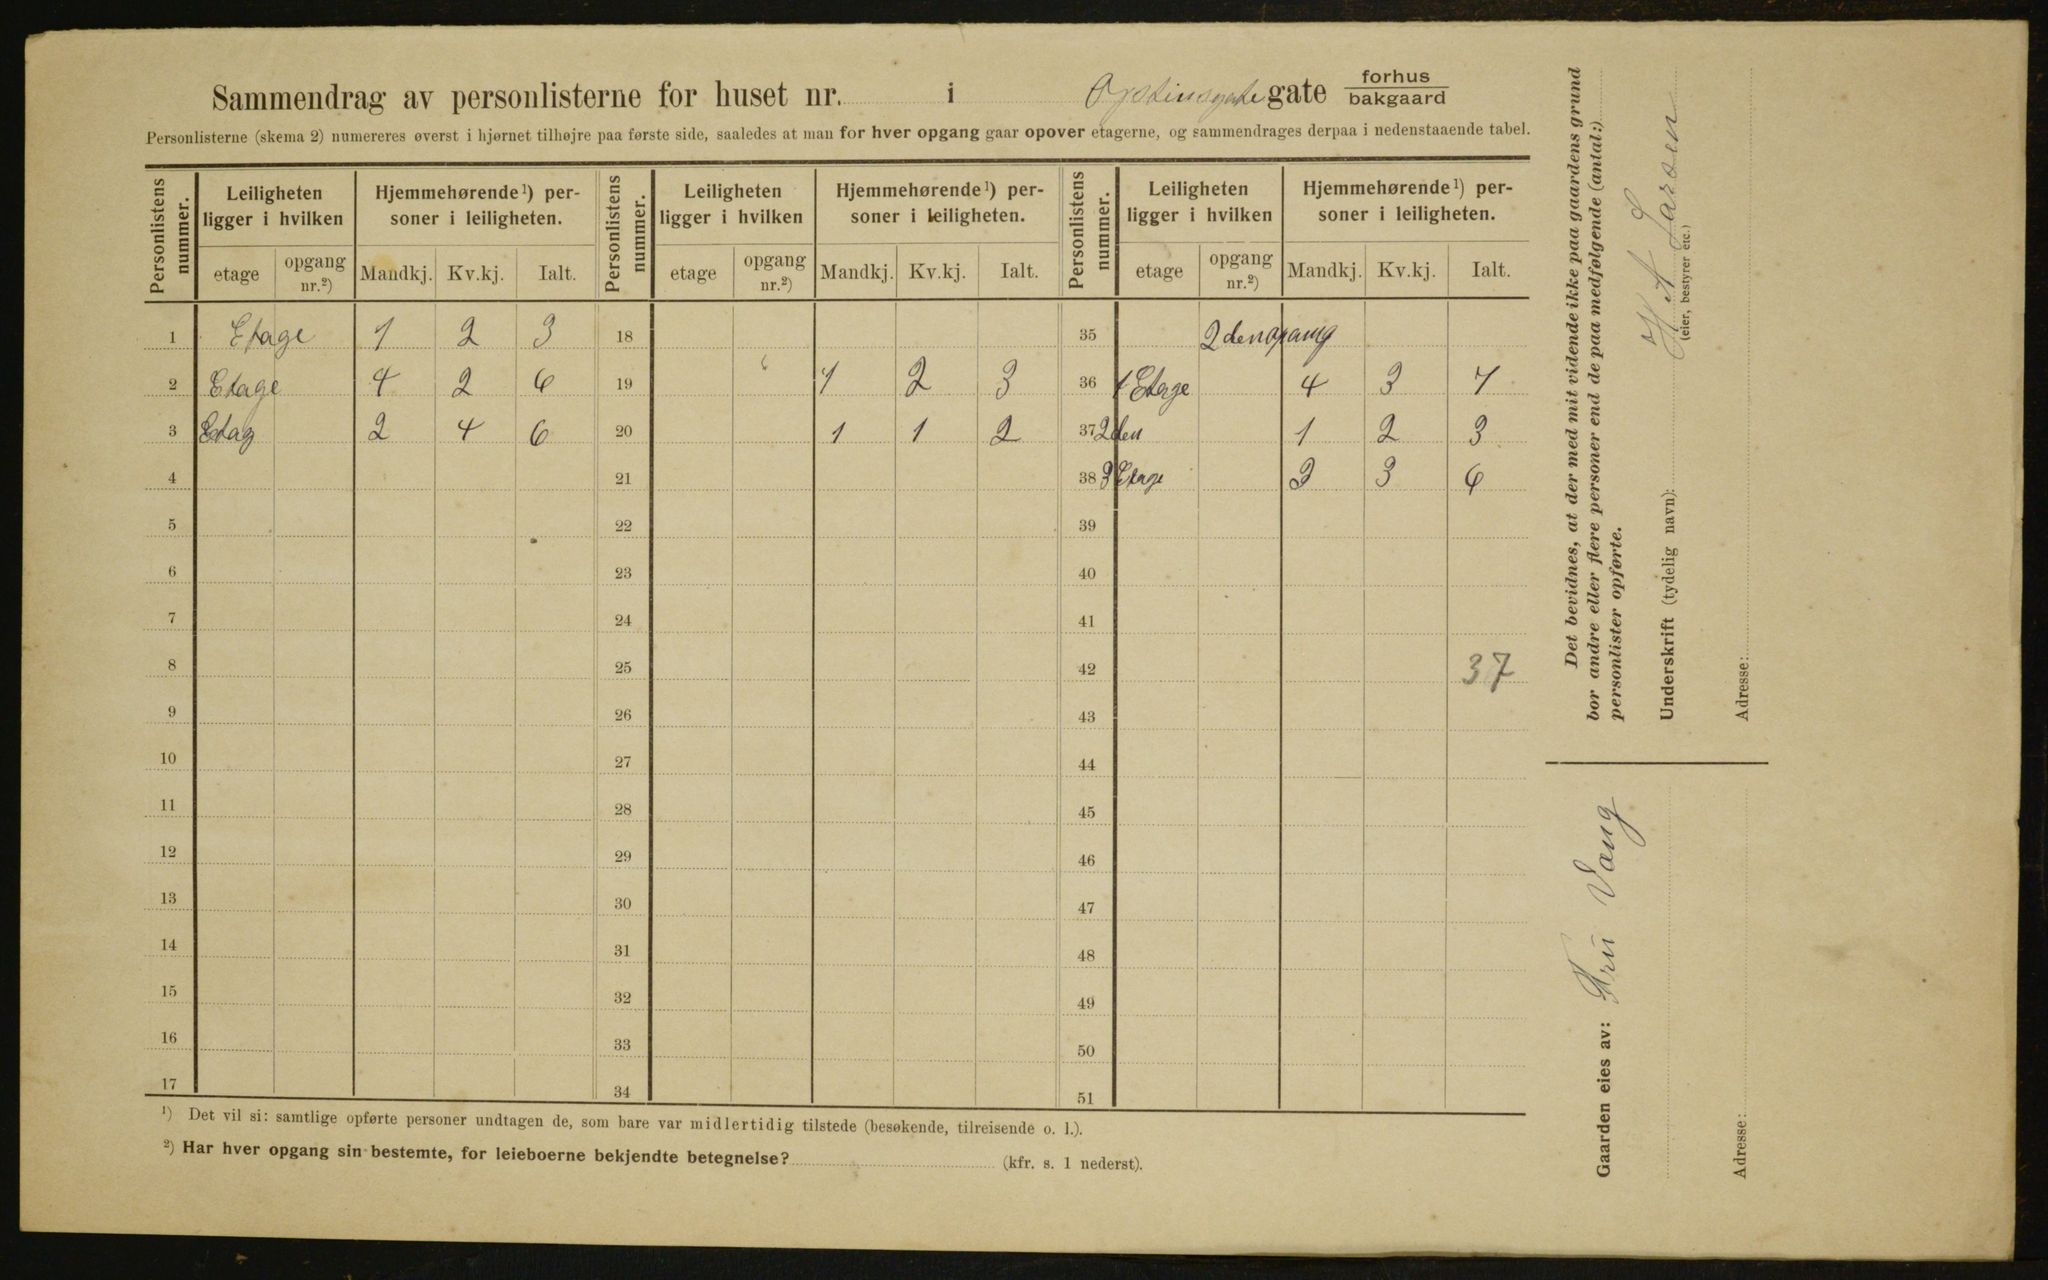 Sammendrag av personlisterne for huset nr. i gate forhus bakgaard
Personlisterne (skema 2) numereres øverst i hjørnet tilhøjre paa første side, saaledes at man for hver opgang gaar opover etagerne, og sammendrages derpaa i nedenstaaende tabel.
Personlistens nummer. Leiligheten ligger i hvilken Hjemmehørende¹) personer i leiligheten. Personlistens nummer. Leiligheten ligger i hvilken Hjemmehørende¹) personer i leiligheten. Personlistens nummer. Leiligheten ligger i hvilken Hjemmehørende¹) personer i leiligheten.
etage opgang nr.²) Mandkj. Kv.kj. Ialt. etage opgang nr.²) Mandkj. Kv.kj. Ialt. etage opgang nr.²) Mandkj. Kv.kj. Ialt.
1 Etage 1 2 3 18 35 2den opang
2 Etage 4 2 6 19 1 2 3 36 1 Etage 4 3 7
3 Etag 2 4 6 20 1 1 2 37 2den 1 2 3
4 21 38 3 Etage 3 3 6
5 22 39
6 23 40
7 24 41
8 25 42 37
9 26 43
10 27 44
11 28 45
12 29 46
13 30 47
14 31 48
15 32 49
16 33 50
17 34 51
¹) Det vil si: samtlige opførte personer undtagen de, som bare var midlertidig tilstede (besøkende, tilreisende o. l.).
²) Har hver opgang sin bestemte, for leieboerne bekjendte betegnelse? (kfr. s. 1 nederst).
Det bevidnes, at der med mit vidende ikke paa gaardens grund
bor andre eller flere personer end de paa medfølgende (antal:)
personlister opførte.
Underskrift (tydelig navn): H A Larsen
(eier, bestyrer etc.)
Adresse:
Gaarden eies av: Fru Vang
Adresse: